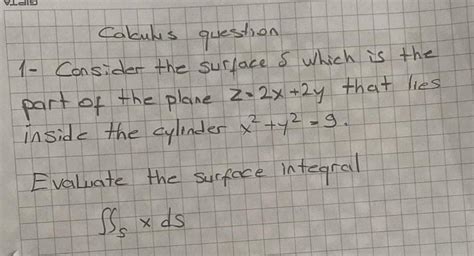 Calculus question
1- Consider the surface S which is the
part of the plane z=2x+2y that lies
inside the cylinder x²+y²=9.
Evaluate the surface integral
∬ₛ x ds